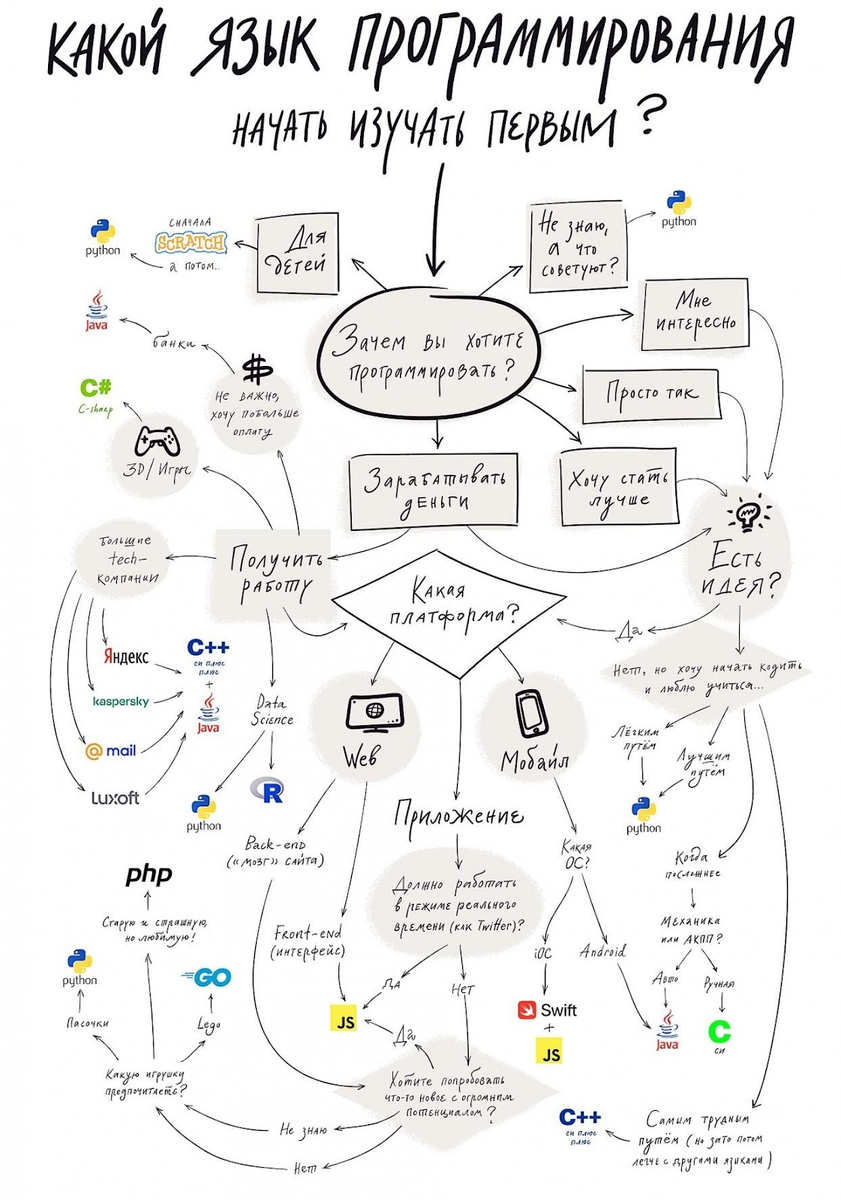 КАКОЙ ЯЗЫК ПРОГРАММИРОВАНИЯ
НАЧАТЬ ИЗУЧАТЬ ПЕРВЫМ?
Зачем вы хотите
программировать?
Для
детей
СНАЧАЛА
SCRATCH
а потом..
python
Не знаю,
а что
советуют?
python
Мне
интересно
Просто так
Хочу стать
лучше
Зарабатывать
деньги
Есть
идея?
Получить
работу
$
Не важно,
хочу побольше
оплату
банки
Java
3D/Игры
C#
C-sharp
Большие
tech-
компании
Яндекс
kaspersky
@mail
Luxoft
C++
си плюс
плюс
+
Java
Data
Science
python
R
Какая
платформа?
Да
Нет, но хочу начать кодить
и люблю учиться...
Лёгким
путём
Лучшим
путём
python
Когда
посложнее
Механика
или АКПП?
Авто
Ручная
Java
C
си
Самим трудным
путём (но зато потом
легче с другими языками)
C++
си плюс
плюс
Web
Мобайл
Приложение
Back-end
(«мозг» сайта)
Front-end
(интерфейс)
Должно работать
в режиме реального
времени (как Twitter)?
Да
Нет
JS
Да
Какая
ОС?
iOC
Android
Swift
+
JS
Хотите попробовать
что-то новое с огромным
потенциалом?
Не знаю
Нет
Какую игрушку
предпочитаете?
Пасочки
python
Старую и страшную,
но любимую!
php
Lego
GO